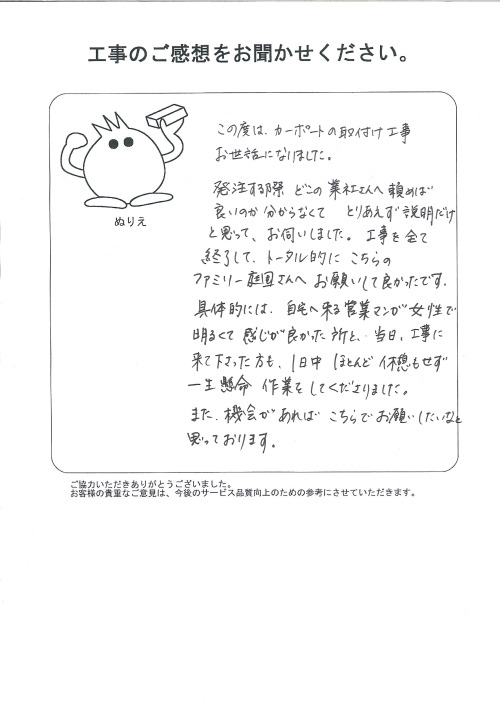 工事のご感想をお聞かせください。
ぬりえ
この度は、カーポートの取付け工事
お世話になりました。
発注する際 どこの業社さんへ頼めば
良いのか分からなくて とりあえず説明だけ
と思って、お伺いしました。工事を全て
終了して、トータル的に こちらの
ファミリー庭園さんへ お願いして良かったです。
具体的には、自宅へ来る営業マンが女性で
明るくて 感じが良かった所と、当日、工事に
来て下さった方も、1日中 ほとんど休憩もせず
一生懸命 作業をしてくださりました。
また、機会があれば こちらでお願いしたいなと
思っております。
ご協力いただきありがとうございました。
お客様の貴重なご意見は、今後のサービス品質向上のための参考にさせていただきます。